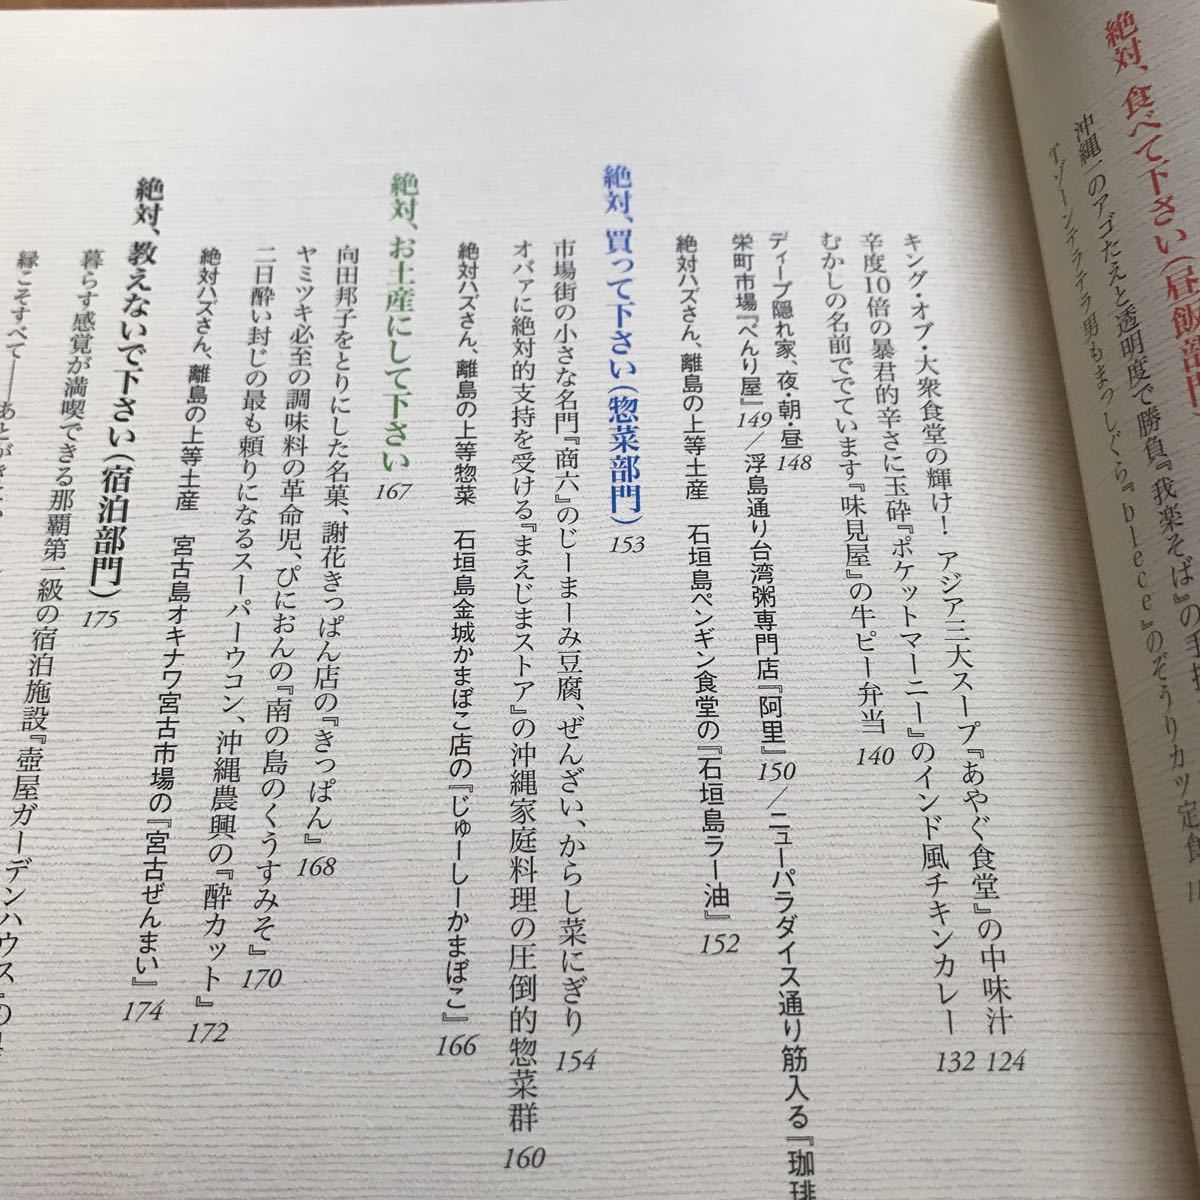 絶対、食べて下さい(昼飯部門
沖縄一のアゴたえと透明度で勝負『我楽そば』の手打
Tゾーンテラテラ男もまっしぐら『biece』のぞうりカツ定食
キング・オブ・大衆食堂の輝け! アジア三大スープ『あやぐ食堂』の中味汁 124
辛度10倍の暴君的辛さに玉砕『ポケットマーニー』のインド風チキンカレー 132
むかしの名前ででています『味見屋』の牛ピー弁当 140
ディープ隠れ家、夜・朝・昼 148
栄町市場『べんり屋』 149/浮島通り台湾粥専門店『阿里』 150/ニューパラダイス通り筋入る『珈琲
絶対ハズさん、離島の上等土産 石垣島ペンギン食堂の『石垣島ラー油』 152
絶対、買って下さい(惣菜部門) 153
市場街の小さな名門『商六』のじーまーみ豆腐、ぜんざい、からし菜にぎり 154
オバァに絶対的支持を受ける『まえじまストア』の沖縄家庭料理の圧倒的惣菜群 160
絶対ハズさん、離島の上等惣菜 石垣島金城かまぼこ店の『じゅーしーかまぼこ』 166
絶対、お土産にして下さい 167
向田邦子をとりにした名菓、謝花きっぱん店の『きっぱん』 168
ヤミツキ必至の調味料の革命児、ぴにおんの『南の島のくうすみそ』 170
二日酔い封じの最も頼りになるスーパーウコン、沖縄農興の『酔カット』 172
絶対ハズさん、離島の上等土産 宮古島オキナワ宮古市場の『宮古ぜんまい』 174
絶対、教えないで下さい(宿泊部門) 175
暮らす感覚が満喫できる那覇第一級の宿泊施設『壺屋ガーデンハウス』の
縁こそすべて――あとがきに